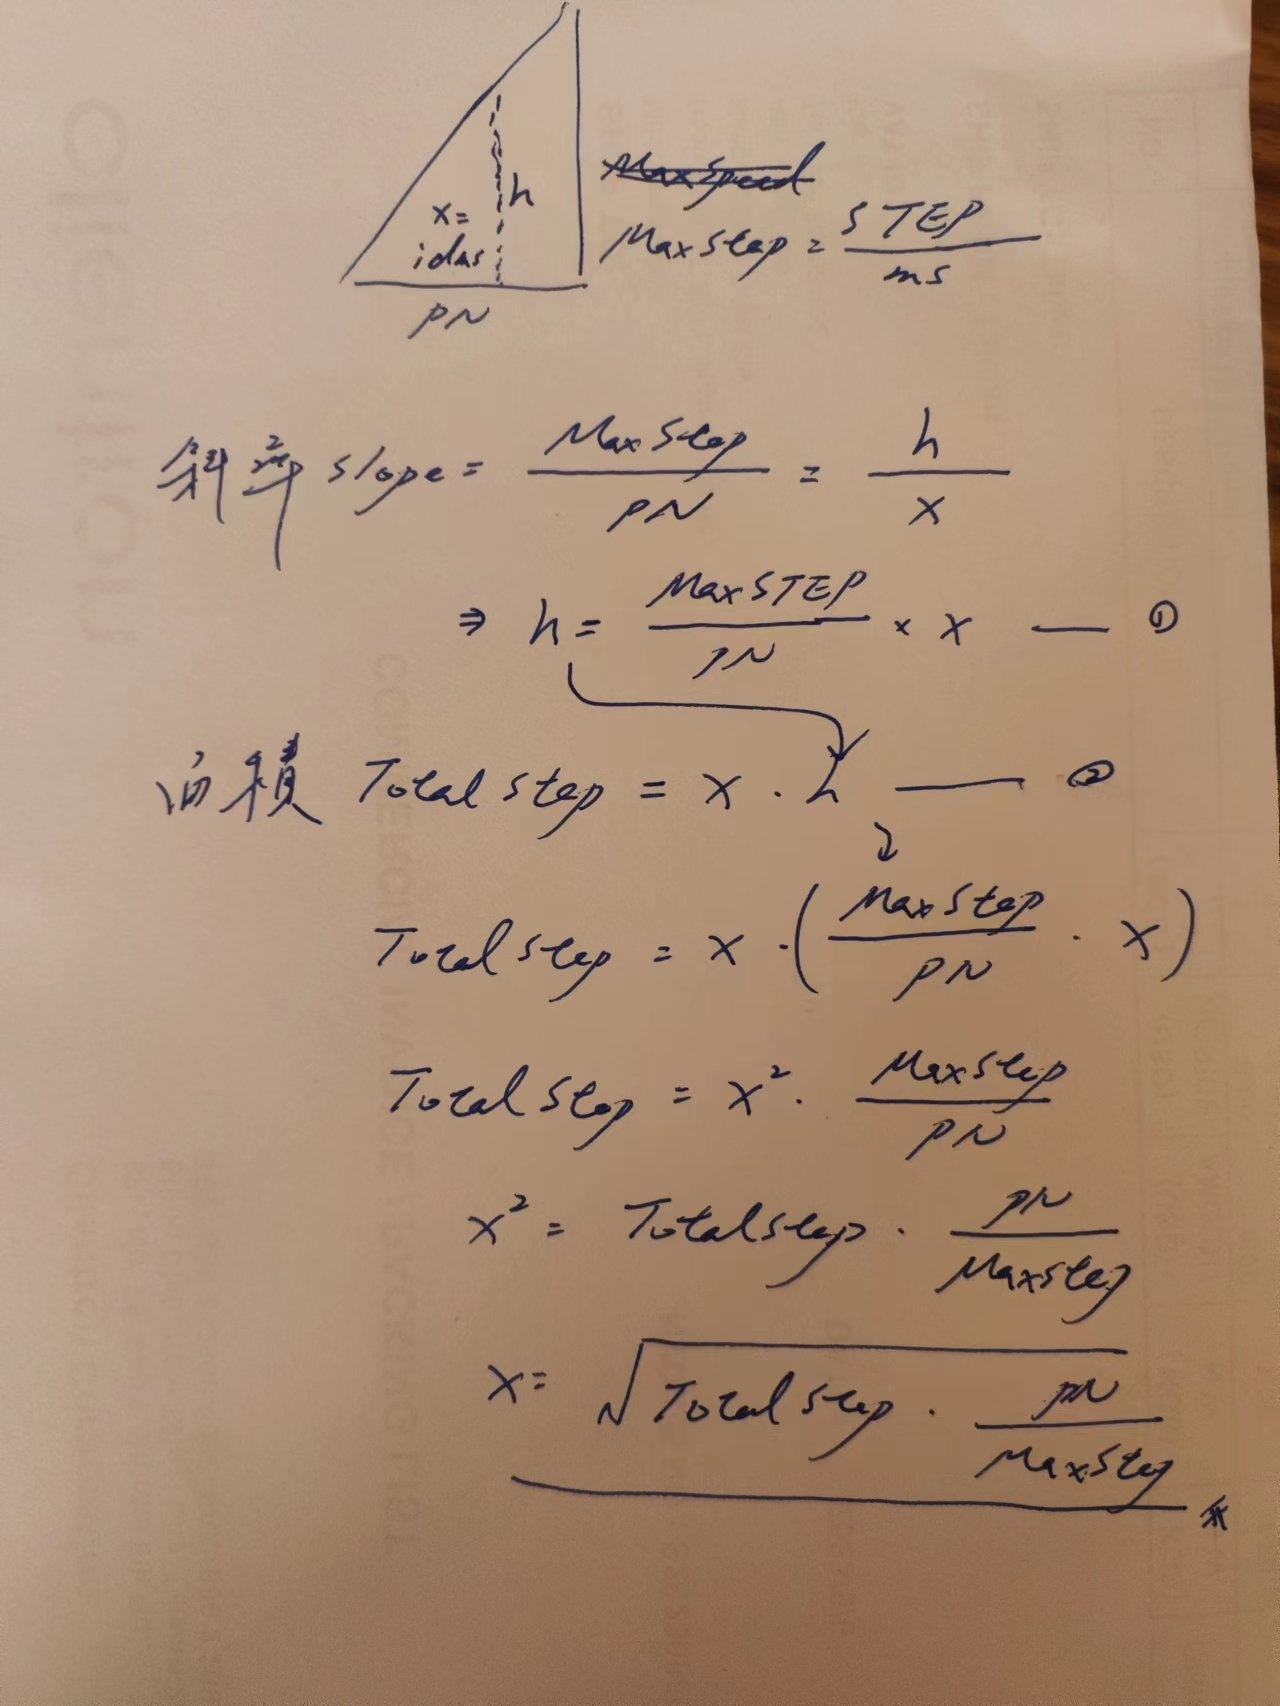 h
MaxSpeed
x=
idxs
MaxStep = STEP/ms
PN
斜率 slope = MaxStep/PN = h/x
⇒ h = MaxSTEP/PN × x — ①
面積 Total step = x · h — ②
Total step = x · (MaxStep/PN · x)
Total Step = x² · MaxStep/PN
x² = TotalStep · PN/MaxStep
x = √Total Step · PN/MaxStep